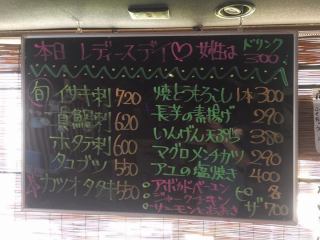 本日 レディースデイ♡ 女性は ドリンク 300
旬 イサキ刺 720
真鯛刺 620
ホタテ刺 600
タコブツ 550
☆カツオタタキ 550
焼とうもろこし 1本 300
長芋の素揚げ 290
いんげん天ぷら 380
マグロメンチカツ 290
アユの塩焼き 400
アボカドベーコン
ジャークチキン
ピザ 各 700